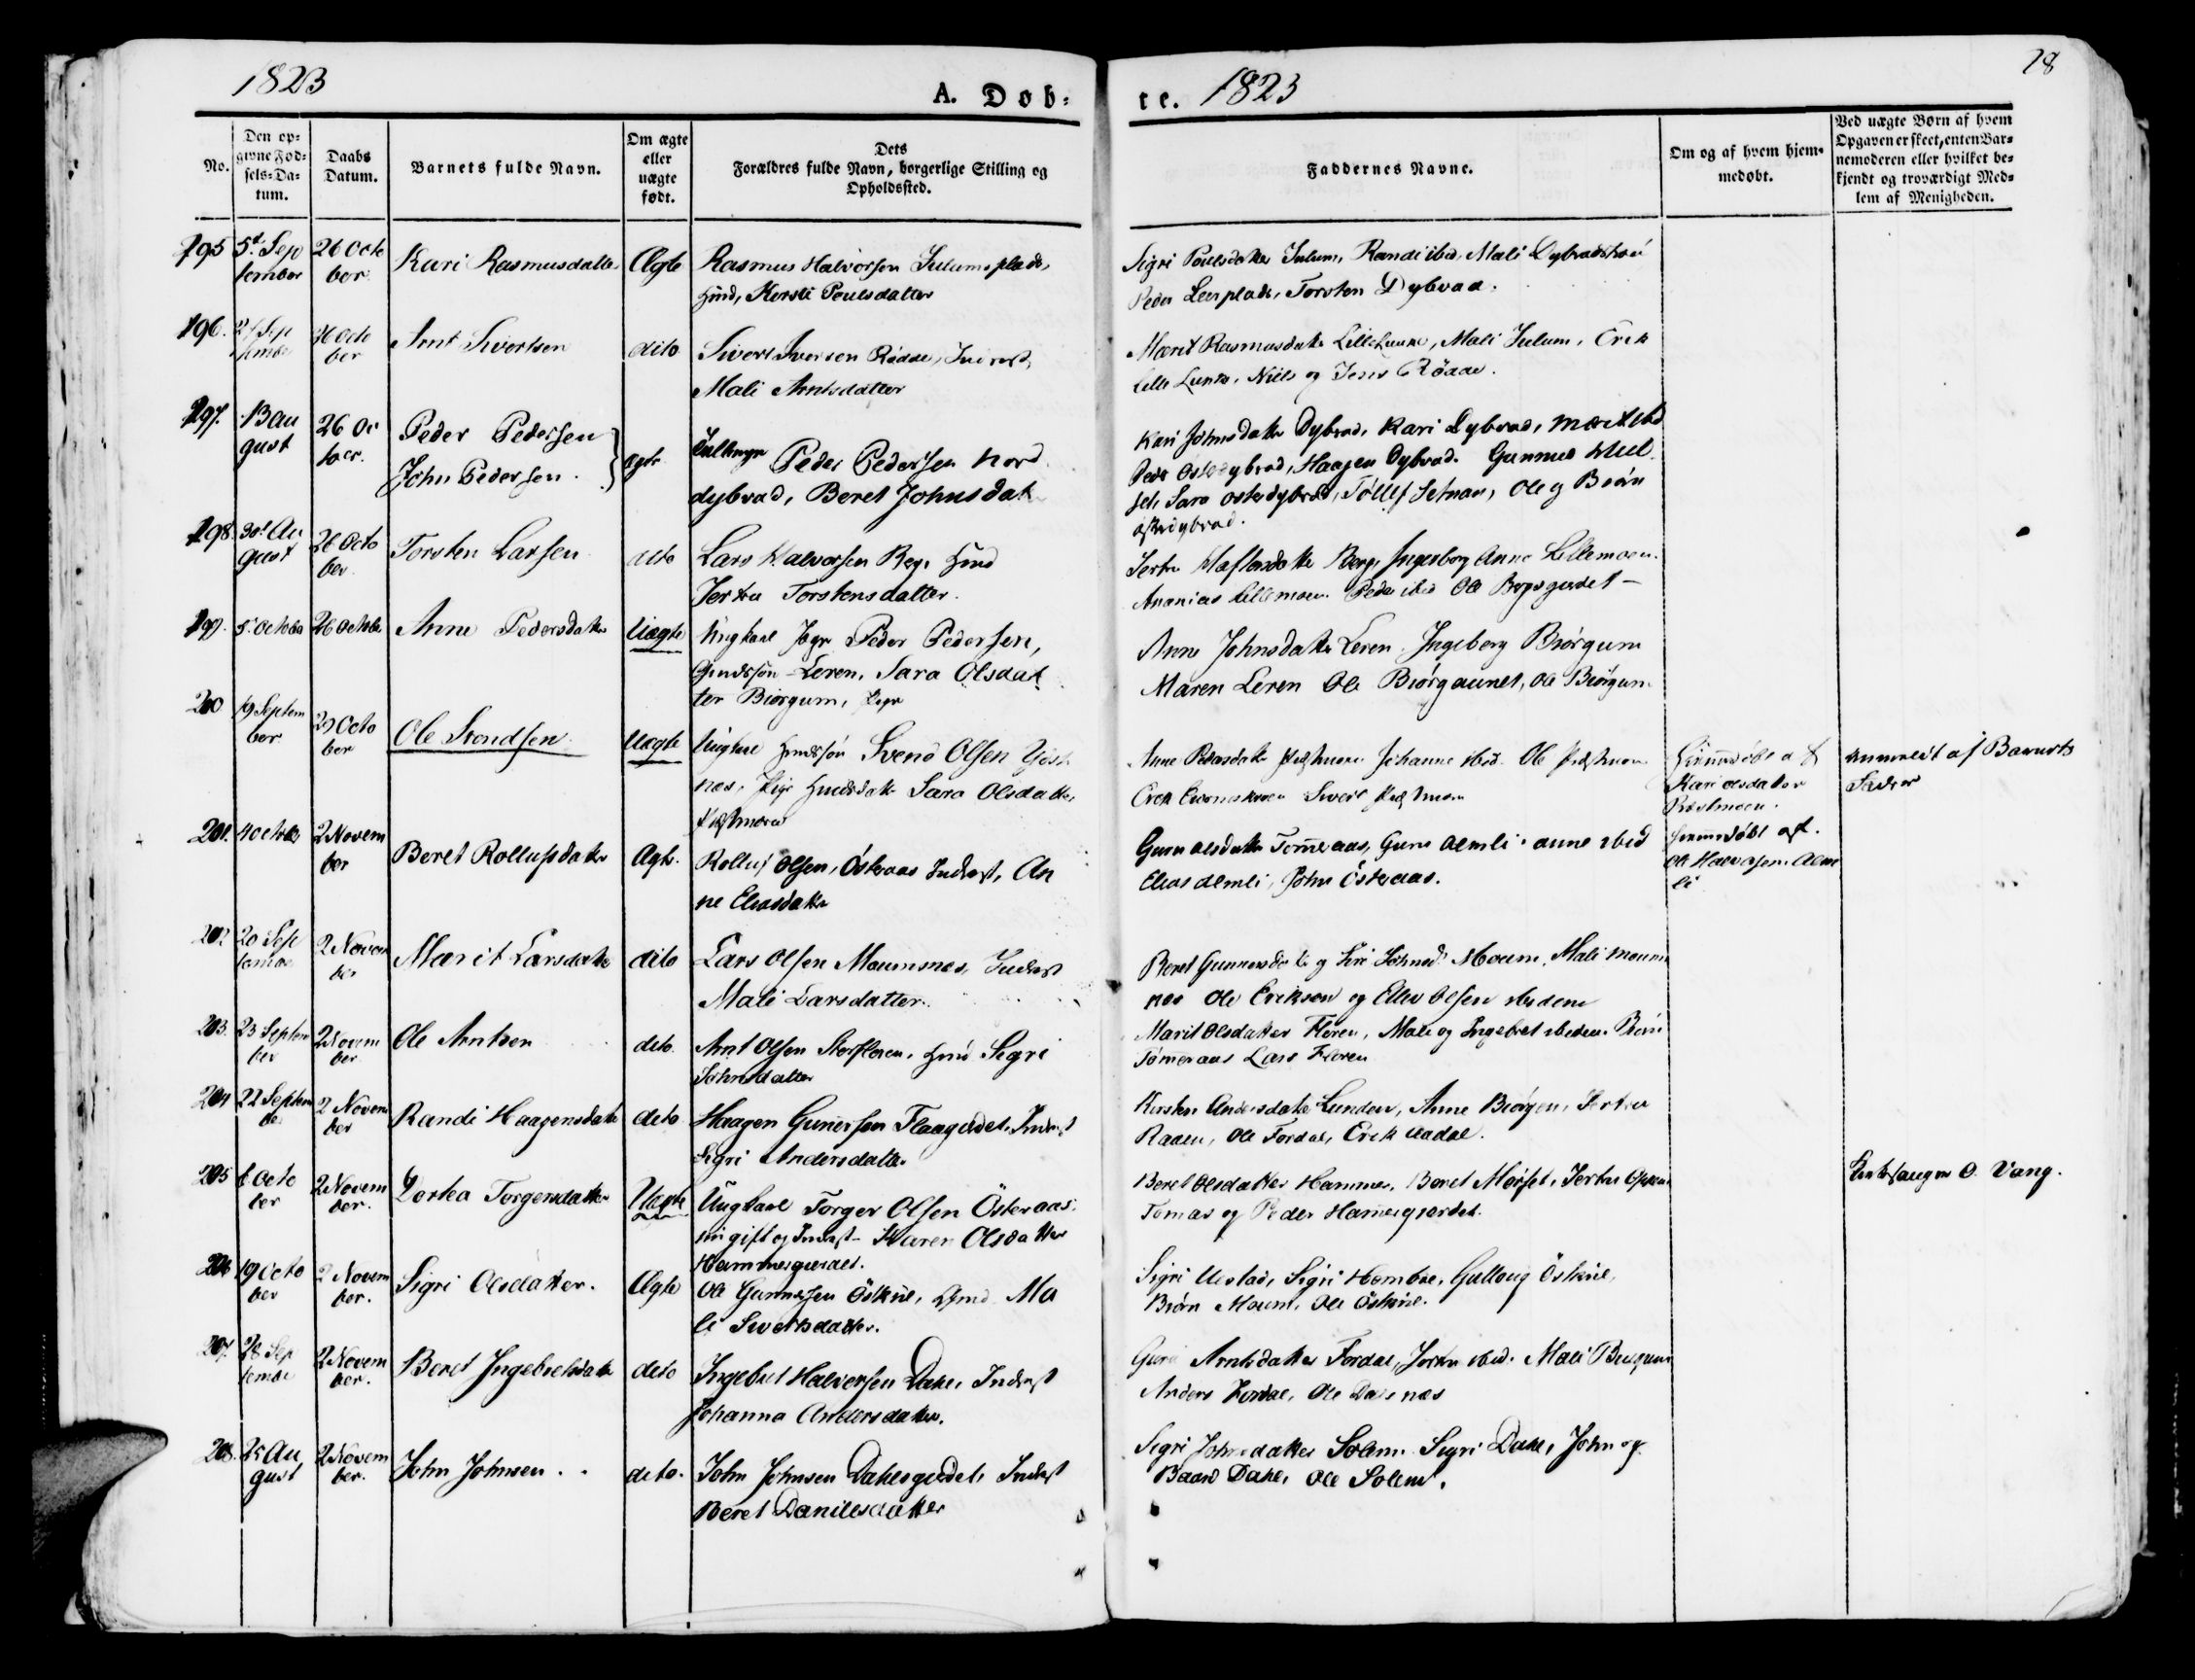 1823
A. Døb-
te. 1823
28
No.
Den op-
givne Fød-
sels-Da-
tum.
Daabs
Datum.
Barnets fulde Navn.
Om ægte
eller
uægte
født.
Dets
Forældres fulde Navn, borgerlige Stilling og
Opholdssted.
Faddernes Navne.
Om og af hvem hjem-
medøbt.
Ved uægte Børn af hvem
Opgaven er skeet, enten Bar-
nemoderen eller hvilket be-
kjendt og troværdigt Med-
lem af Menigheden.
195 5t Sep
tember
26 Octo
ber
Kari Rasmusdatter
Ægte
Rasmus Halvorsen Julumsplads,
Hmd, Kersti Poulsdatter
Sigri Poulsdatter Julum, Randi ibid, Mali
Peder Leerplads, Torsten Dybvad.
196. Sep
26 Octo
ber
Arnt Sivertsen
dito
Sivert Iversen Rödde, Inderst,
Mali Arntsdatter
Marit Rasmusdatter, Mali Julum, Erik
Lille Lunke, Niels og Jens Rödde.
197. 13 Au
gust
26 Oc
tober
Peder Pedersen
John Pedersen.
ægte
Peder Pedersen Nord
dybvad, Beret Johnsdat
Kari Johnsdatter Dybvad, Kari Dybvad, Marit ibid
Peder Osterdybvad, Haagen Dybvad. Gunned
Sara Osterdybvad, Tøllef Setnan, Ole og Biörn
Østerdybvad.
198. 30t Au
gust
26 Octo
ber
Torsten Larsen
dito
Lars Halvorsen Hmd
Torstensdatter.
Berg, Ingeborg Anne Lillemoen.
Ananias Lillemoen Peder ibid Ole
199. 5 October
26 October
Anne Pedersdatter
Uægte
Ungkarl Peder Pedersen,
Leren, Sara Olsdat
ter Biorgum, Pige
Anne Johnsdatter Leren, Ingeborg Biörgum
Maren Leren Ole Biörgaunet, Ole Biörgum
200 19 Septem
ber
29 Octo
ber
Ole Svendsen
Uægte
Ungkarl Svend Olsen
nes, Pige Sara Olsdatter,
Anne Pedersdatter Johanne ibid. Ole
Erik Sivert
Hiemmedöbt af
Kari Olsdatter
anmeldt af Barnets
Fader
201. 4 October
2 Novem
ber
Beret Rollufsdatter
Ægte.
Rolluf Olsen, Österaas Inderst, An
ne Eliasdatter
Guru Olsdatter Tømeraas, Guru Almli, anne ibid
Elias Almli, John Österaas.
Hiemmedøbt af
Ole Halvorsen Alm
li
202 20 Sep
tember
2 Novem
ber
Marit Larsdatter
dito
Lars Olsen Moumnes, Inderst
Mali Larsdatter.
Beret Gunnersdatter og Siri Johnsd. Moum, Mali Moum
nes Ole Erikson og Ellev Olsen ibidem
203. 23 Septem
ber
2 Novem
ber
Ole Arntsen
dito
Arnt Olsen Storfloren, Hmd Sigri
Johnsdatter
Marit Olsdatter Floren, Mali og Ingebret ibidem.
Tömeraas Lars Floren
204 22 Septem
ber
2 Novem
ber
Randi Haagensdatter
dito
Haagen Gunnersen, Inderst
Sigri Andersdatter
Kirsten Andersdatter Lunden, Anne Biörgen,
Raaen, Ole Fordal, Erik
205 6 Octo
ber
2 Novem
ber.
Dortea Torgersdatter
Uægte
Ungkarl Torger Olsen Österaas,
ungift og Inderst Karen Olsdatter
Hammersgardet.
Beret Olsdatter Hammer, Beret Mørset,
Tomas og Peder Hamersgaardet.
O. Vang.
206 19 Octo
ber
2 Novem
ber.
Sigri Olsdatter.
Ægte
Ole Gunnersen Östkiil, Hmd Ma
li Sivertsdatter.
Sigri Uestad, Sigri Hembre, Gullaug Östkiil,
Biörn Moum, Ole Östkiil.
207. 28 Sep
tember
2 Novem
ber.
Beret Ingebretsdatter
dito
Ingebret Halvorsen Dahl, Inderst
Johanna Andersdatter.
Guru Arntsdatter Fordal, ibid. Mali
Anders Fordal, Ole
208. 25 Au
gust
2 Novem
ber.
John Johnsen
dito.
John Johnsen, Inderst
Beret Danielsdatter
Sigri Johnsdatter Solem Sigri Dahl, John og
Baard Dahl, Ole Solem.